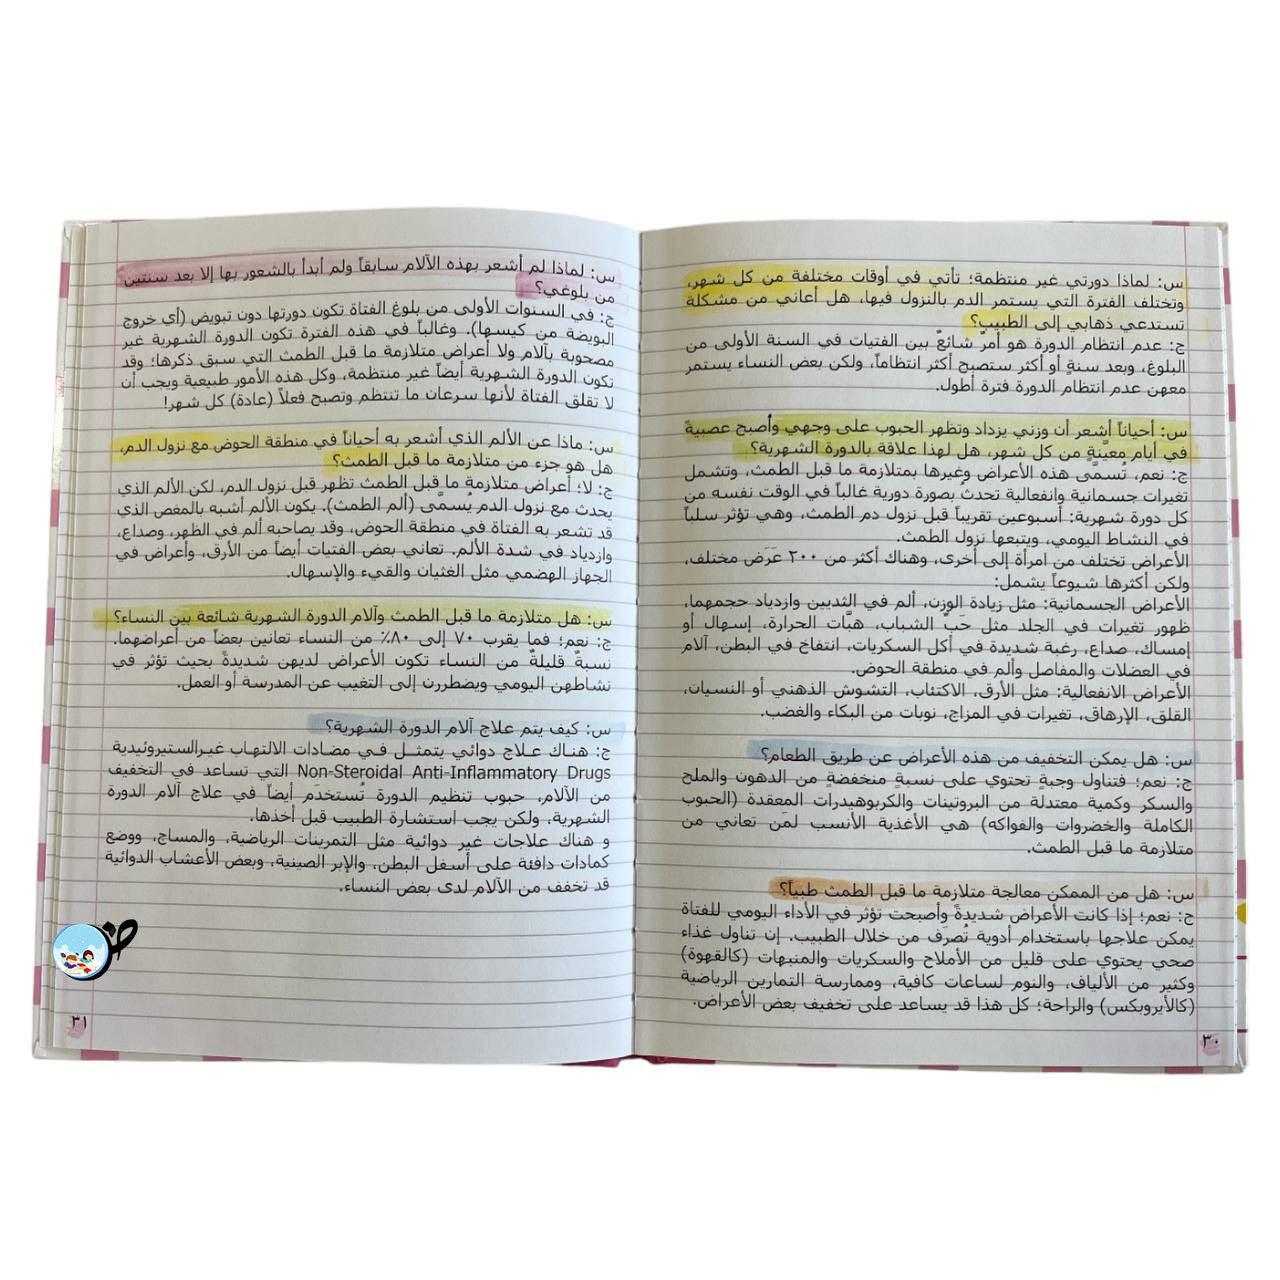 س: لماذا دورتي غير منتظمة؛ تأتي في أوقات مختلفة من كل شهر،
وتختلف الفترة التي يستمر الدم بالنزول فيها، هل أعاني من مشكلة
تستدعي ذهابي إلى الطبيب؟
ج: عدم انتظام الدورة هو أمر شائعٌ بين الفتيات في السنة الأولى من
البلوغ، وبعد سنةٍ أو أكثر ستصبح أكثر انتظاماً، ولكن بعض النساء يستمر
معهن عدم انتظام الدورة فترة أطول.
س: أحياناً أشعر أن وزني يزداد وتظهر الحبوب على وجهي وأصبح عصبيةً
في أيام معيّنةٍ من كل شهر، هل لهذا علاقة بالدورة الشهرية؟
ج: نعم، تُسمَّى هذه الأعراض وغيرها بمتلازمة ما قبل الطمث، وتشمل
تغيرات جسمانية وانفعالية تحدثُ بصورة دورية غالباً في الوقت نفسه من
كل دورة شهرية: أسبوعين تقريباً قبل نزول دم الطمث، وهي تؤثر سلباً
في النشاط اليومي، ويتبعها نزول الطمث.
الأعراض تختلف من امرأة إلى أخرى، وهناك أكثر من ٢٠٠ عَرَض مختلف،
ولكن أكثرها شيوعاً يشمل:
الأعراض الجسمانية: مثل زيادة الوزن، ألم في الثديين وازدياد حجمهما،
ظهور تغيرات في الجلد مثل حَبّ الشباب، هبَّات الحرارة، إسهال أو
إمساك، صداع، رغبة شديدة في أكل السكريات، انتفاخ في البطن، آلام
في العضلات والمفاصل وألم في منطقة الحوض.
الأعراض الانفعالية: مثل الأرق، الاكتئاب، التشوش الذهني أو النسيان،
القلق، الإرهاق، تغيرات في المزاج، نوبات من البكاء والغضب.
س: هل يمكن التخفيف من هذه الأعراض عن طريق الطعام؟
ج: نعم؛ فتناول وجبةٍ تحتوي على نسبةٍ منخفضةٍ من الدهون والملح
والسكر وكمية معتدلة من البروتينات والكربوهيدرات المعقدة (الحبوب
الكاملة والخضروات والفواكه) هي الأغذية الأنسب لمَن تعاني من
متلازمة ما قبل الطمث.
س: هل من الممكن معالجة متلازمة ما قبل الطمث طبياً؟
ج: نعم؛ إذا كانت الأعراض شديدةً وأصبحت تؤثر في الأداء اليومي للفتاة
يمكن علاجها باستخدام أدوية تُصرَف من خلال الطبيب. إن تناول غذاء
صحي يحتوي على قليل من الأملاح والسكريات والمنبهات (كالقهوة)
وكثير من الألياف، والنوم لساعات كافية، وممارسة التمارين الرياضية
(كالأيروبكس) والراحة؛ كل هذا قد يساعد على تخفيف بعض الأعراض.
٣٠
س: لماذا لم أشعر بهذه الآلام سابقاً ولم أبدأ بالشعور بها إلا بعد سنتين
من بلوغي؟
ج: في السنوات الأولى من بلوغ الفتاة تكون دورتها دون تبويض (أي خروج
البويضة من كيسها)، وغالباً في هذه الفترة تكون الدورة الشهرية غير
مصحوبة بآلام ولا أعراض متلازمة ما قبل الطمث التي سبق ذكرها؛ وقد
تكون الدورة الشهرية أيضاً غير منتظمة، وكل هذه الأمور طبيعية ويجب أن
لا تقلق الفتاة لأنها سرعان ما تنتظم وتصبح فعلاً (عادة) كل شهر!
س: ماذا عن الألم الذي أشعر به أحياناً في منطقة الحوض مع نزول الدم،
هل هو جزء من متلازمة ما قبل الطمث؟
ج: لا؛ أعراض متلازمة ما قبل الطمث تظهر قبل نزول الدم، لكن الألم الذي
يحدث مع نزول الدم يُسمَّى (ألم الطمث)، يكون الألم أشبه بالمغص الذي
قد تشعر به الفتاة في منطقة الحوض، وقد يصاحبه ألم في الظهر، وصداع،
وازدياد في شدة الألم. تعاني بعض الفتيات أيضاً من الأرق، وأعراض في
الجهاز الهضمي مثل الغثيان والقيء والإسهال.
س: هل متلازمة ما قبل الطمث وآلام الدورة الشهرية شائعة بين النساء؟
ج: نعم؛ فما يقرب ٧٠ إلى ٨٠٪ من النساء تعانين بعضاً من أعراضهما.
نسبةٌ قليلةٌ من النساء تكون الأعراض لديهن شديدةً بحيث تؤثر في
نشاطهن اليومي ويضطررن إلى التغيب عن المدرسة أو العمل.
س: كيف يتم علاج آلام الدورة الشهرية؟
ج: هناك علاج دوائي يتمثل في مضادات الالتهاب غيرالستيروئيدية
Non-Steroidal Anti-Inflammatory Drugs التي تساعد في التخفيف
من الآلام، حبوب تنظيم الدورة تُستخدَم أيضاً في علاج آلام الدورة
الشهرية، ولكن يجب استشارة الطبيب قبل أخذها.
و هناك علاجات غير دوائية مثل التمرينات الرياضية، والمساج، ووضع
كمادات دافئة على أسفل البطن، والإبر الصينية، وبعض الأعشاب الدوائية
قد تخفف من الآلام لدى بعض النساء.
٣١